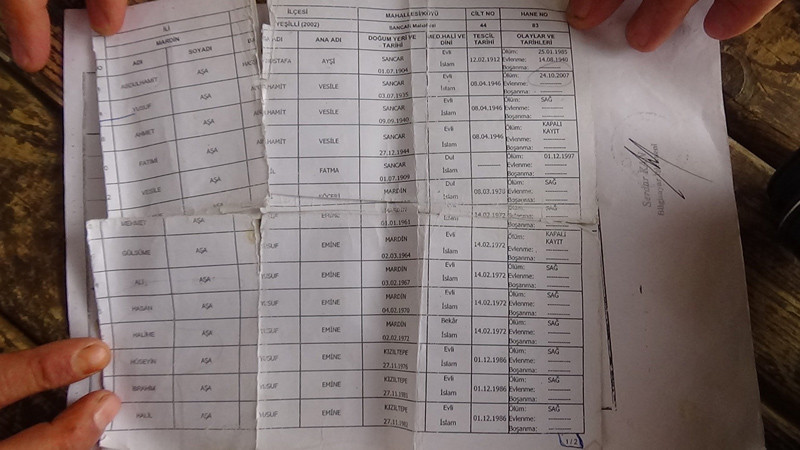 İLİ İLÇESİ MAHALLESİ/KÖYÜ CİLT NO HANE NO
MARDİN YEŞİLLİ (2002) SANCAR Mahallesi 44 83
ADI SOYADI ADI ANA ADI DOĞUM YERİ VE TARİHİ MED.HALİ VE DİNİ TESCİL TARİHİ OLAYLAR VE TARİHLERİ
ABDULHAMET AŞA AYŞİ SANCAR 01.07.1904 Evli İslam 12.02.1912 Ölüm: 25.01.1985 Evlenme: 14.08.1940 Boşanma:
YUSUF AŞA VESİLE SANCAR 03.07.1935 Evli İslam 08.04.1946 Ölüm: 24.10.2007 Evlenme: Boşanma:
AHMET AŞA VESİLE SANCAR 09.09.1940 Evli İslam 08.04.1946 Ölüm: SAĞ Evlenme: Boşanma:
FATIMI AŞA VESİLE SANCAR 27.12.1944 Evli İslam 08.04.1946 Ölüm: KAPALI KAYIT Evlenme: Boşanma:
VESİLE AŞA FATMA SANCAR 01.07.1909 Dul İslam Ölüm: 01.12.1997 Evlenme: Boşanma:
MARDİN Dul İslam Ölüm: SAĞ Evlenme: Boşanma:
MEHMET AŞA EMİNE 01.01.1961 İslam 14.02.1972 SAĞ Evlenme: Boşanma:
GÜLSÜME AŞA YUSUF EMİNE MARDİN 02.03.1964 Evli İslam 14.02.1972 Ölüm: KAPALI KAYIT Evlenme: Boşanma:
ALİ AŞA YUSUF EMİNE MARDİN 03.02.1967 Evli İslam 14.02.1972 Ölüm: SAĞ Evlenme: Boşanma:
HASAN AŞA YUSUF EMİNE MARDİN 04.02.1970 Evli İslam 14.02.1972 Ölüm: SAĞ Evlenme: Boşanma:
HALİME AŞA YUSUF EMİNE MARDİN 02.02.1972 Bekâr İslam 14.02.1972 Ölüm: SAĞ Evlenme: Boşanma:
HÜSEYİN AŞA YUSUF EMİNE KIZILTEPE 27.11.1976 Evli İslam 01.12.1986 Ölüm: SAĞ Evlenme: Boşanma:
İBRAHİM AŞA YUSUF EMİNE KIZILTEPE 27.11.1981 Evli İslam 01.12.1986 Ölüm: SAĞ Evlenme: Boşanma:
HALİL AŞA YUSUF EMİNE KIZILTEPE Evli İslam 01.12.1986 Ölüm: SAĞ Evlenme: Boşanma:
1/2
Serdar